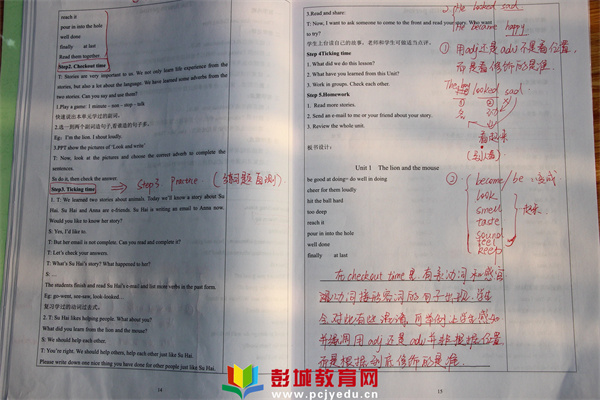 reach it
pour in into the hole
well done
finally at last
Read them together.
Step2. Checkout time
T: Stories are very important to us. We not only learn life experience from the
stories, but also a lot about the language. We have learned some adverbs from the
two stories. Can you say and use them?
1.Play a game: 1 minute – non – stop – talk
快速说出本单元学过的副词。
2.选一到两个副词造句子,看谁造的句子多。
Eg: I'm in the lion. I shout loudly.
3.PPT shows the pictures of 'Look and write'
T: Now, look at the pictures and choose the correct adverb to complete the
sentences.
Ss do it, then check the answer.
Step3. Ticking time
⇒ Step3 Practice
1. T: We learned two stories about animals. Today we'll know a story about Su
Hai. Su Hai and Anna are e-friends. Su Hai is writing an email to Anna now.
Would you like to know her story?
S: Yes, I'd like to.
T: But her email is not complete. Can you read and complete it?
T: Let's check your answers.
T: What's Su Hai's story? What happened to her?
S: ...
The students finish and read Su Hai's e-mail and list more verbs in the past form.
Eg: go-went, see-saw, look-looked...
复习学过的动词过去式。
2. T: Su Hai likes helping people. What about you?
What did you learn from the lion and the mouse?
S: We should help each other.
T: You're right. We should help others, help each other just like Su Hai.
Please write down one nice thing you have done for other people just like Su Hai.
14
3.Read and share:
T: Now, I want to ask someone to come to the front and read your story. Who want
to try?
学生上台读自己的故事,老师和学生可做适当点评。
Step 4Ticking time
1. What did we do this lesson?
2. What have you learned from this Unit?
3. Work in groups. Check each other.
Step 5.Homework
1. Read more stories.
2. Send an e-mail to me or your friend about your story.
3. Review the whole unit.
板书设计:
Unit 1 The lion and the mouse
be good at doing= do well in doing
cheer for them loudly
hit the ball hard
too deep
reach it
pour in into the hole
well done
finally at last
He looked sad
He became happy
① 用adj还是adv不是看位置,
而是看修饰的是谁.
The boy looked sad
看起来
② become/be 变成
look
smell
taste
sound
feel
keep
在checkout time里有表动词和感官
并非根据位置
而是根据到底修饰的是谁.
15
彭城教育网
www.pcjyedu.cn